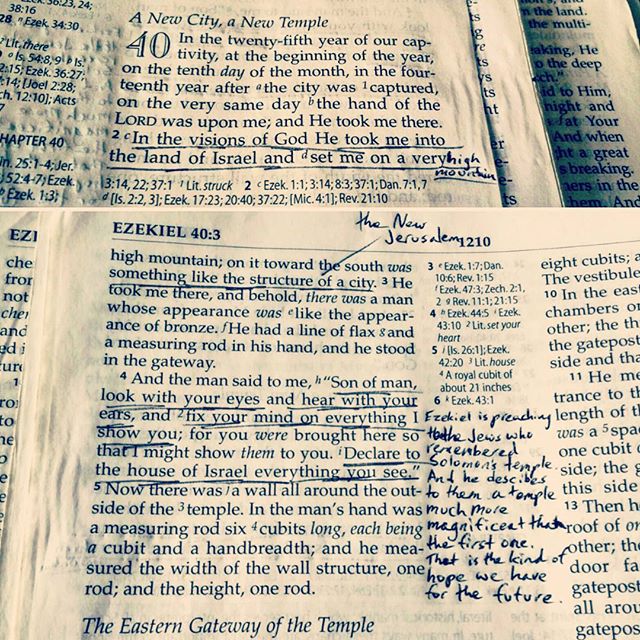 38:16
28 n Ezek. 34:30
2 Lit. there
o Is. 54:8, 9 p Is.
Ezek. 36:27;
[Joel 2:28;
12:10]; Acts
CHAPTER 40
25:1–4; Jer.
52:4–7; Ezek.
b Ezek. 1:3;
A New City, a New Temple
40 In the twenty-fifth year of our cap-
tivity, at the beginning of the year,
on the tenth day of the month, in the four-
teenth year after a the city was 1 captured,
on the very same day b the hand of the
LORD was upon me; and He took me there.
2 c In the visions of God He took me into
the land of Israel and d set me on a very high
mountain
3:14, 22; 37:1 1 Lit. struck 2 c Ezek. 1:1; 3:14; 8:3; 37:1; Dan. 7:1, 7
d [Is. 2:2, 3]; Ezek. 17:23; 20:40; 37:22; [Mic. 4:1]; Rev. 21:10
the land.
the multi-
He
to the deep
to Him,
night and
Your
And when
a great
breaking.
in the
And
EZEKIEL 40:3
the New
Jerusalem
1210
high mountain; on it toward the south was
something like the structure of a city. 3 He
took me there, and behold, there was a man
whose appearance was e like the appear-
ance of bronze. f He had a line of flax g and
a measuring rod in his hand, and he stood
in the gateway.
4 And the man said to me, h “Son of man,
look with your eyes and hear with your
ears, and 2 fix your mind on everything I
show you; for you were brought here so
that I might show them to you. i Declare to
the house of Israel everything you see.”
5 Now there was j a wall all around the out-
side of the 3 temple. In the man’s hand was
a measuring rod six 4 cubits long, each being
a cubit and a handbreadth; and he mea-
sured the width of the wall structure, one
rod; and the height, one rod.
The Eastern Gateway of the Temple
3 e Ezek. 1:7; Dan.
10:6; Rev. 1:15
f Ezek. 47:3; Zech. 2:1,
2 g Rev. 11:1; 21:15
4 h Ezek. 44:5 i Ezek.
43:10 2 Lit. set your
heart
5 j [Is. 26:1]; Ezek.
42:20 3 Lit. house
4 A royal cubit of
about 21 inches
6 k Ezek. 43:1
Ezekiel is preaching
to the Jews who
remembered
Solomon's temple.
And he descibes
to them a temple
much more
magnificent than
the first one.
That is the kind of
hope we have
for the future.
eight cubits; a
The vestibule
10 In the east
chambers on
other; the th
the gatepost
side and tha
11 He me
trance to t
length of t
was a 5 spa
one cubit
side; the
this side
13 Then h
roof of on
other; the
door fa
gatepos
all arou
gatepo